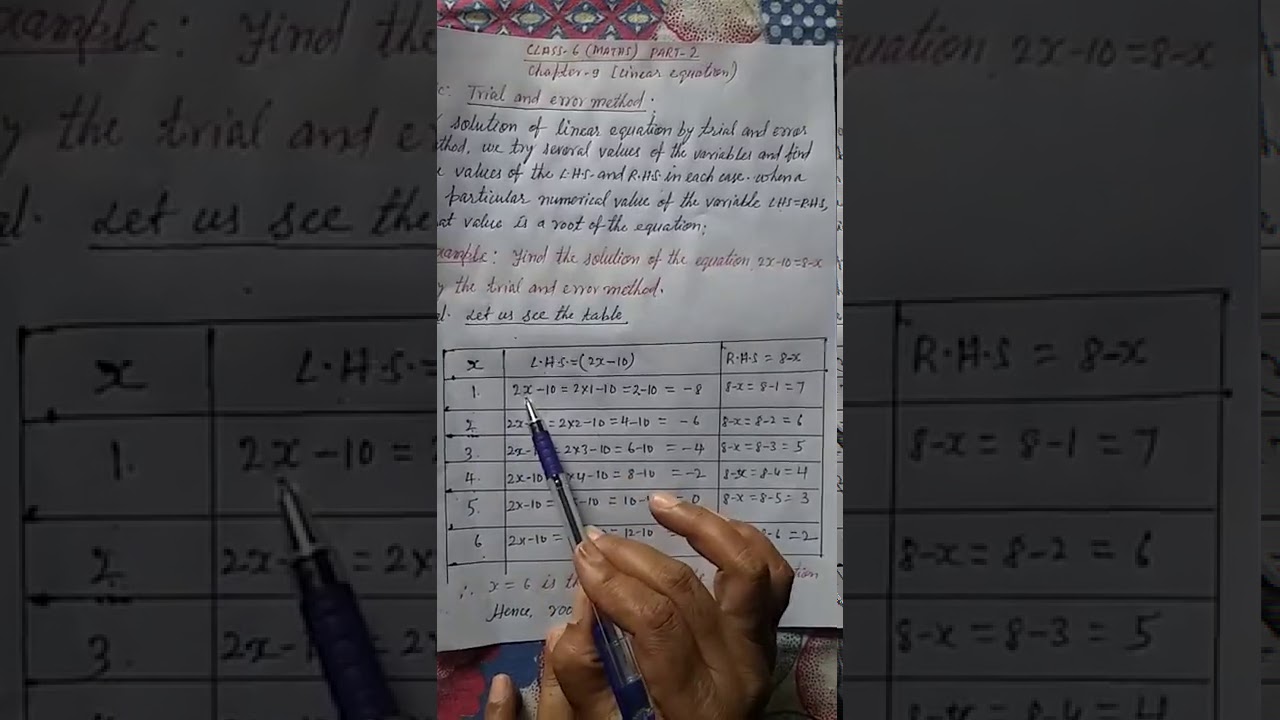 CLASS-6 (MATHS) PART-2
Chapter-9 [Linear equation)
Trial and error method.
solution of linear equation by trial and error
thod, we try several values of the variables and find
values of the L.H.S. and R.H.S in each case. when a
particular numerical value of the variable LHS=RHS,
at value is a root of the equation;
xample: Find the solution of the equation, 2x-10=8-x
y the trial and error method.
Let us see the table
x L.H.S.=(2x-10) R.H.S = 8-x
1. 2x-10 = 2x1-10 = 2-10 = -8 8-x = 8-1 = 7
2. 2x = 2x2-10 = 4-10 = -6 8-x = 8-2 = 6
3. 2x-1 = 2x3-10 = 6-10 = -4 8-x = 8-3 = 5
4. 2x-10 x4-10 = 8-10 = -2 8-x = 8-4 = 4
5. 2x-10 = -10 = 10-1 = 0 8-x = 8-5 = 3
6 2x-10 = = 12-10 8-6 = 2
∴ x = 6 is th
Hence,